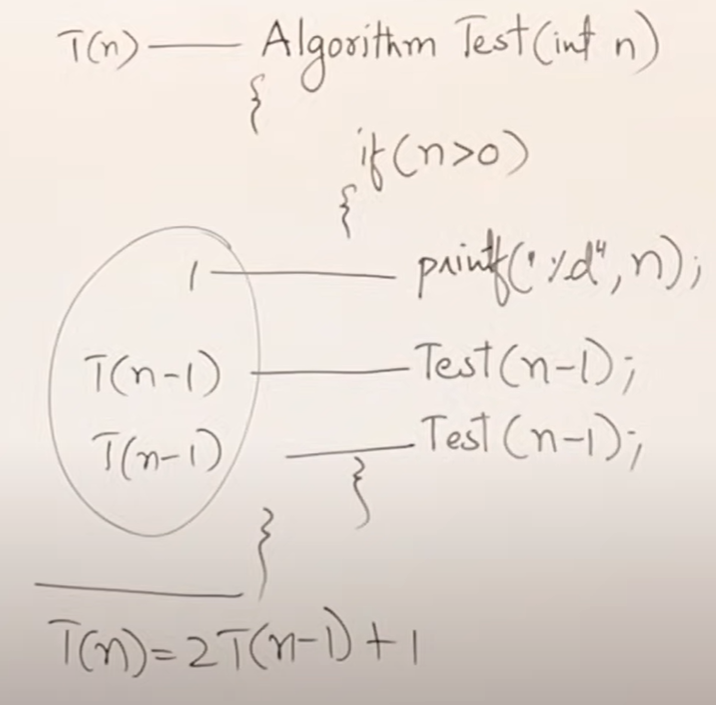 T(n) — Algorithm Test(int n)
{
if(n>0)
{
1 — printf("%d", n);
T(n-1) — Test(n-1);
T(n-1) — Test(n-1);
}
}
T(n)=2T(n-1)+1